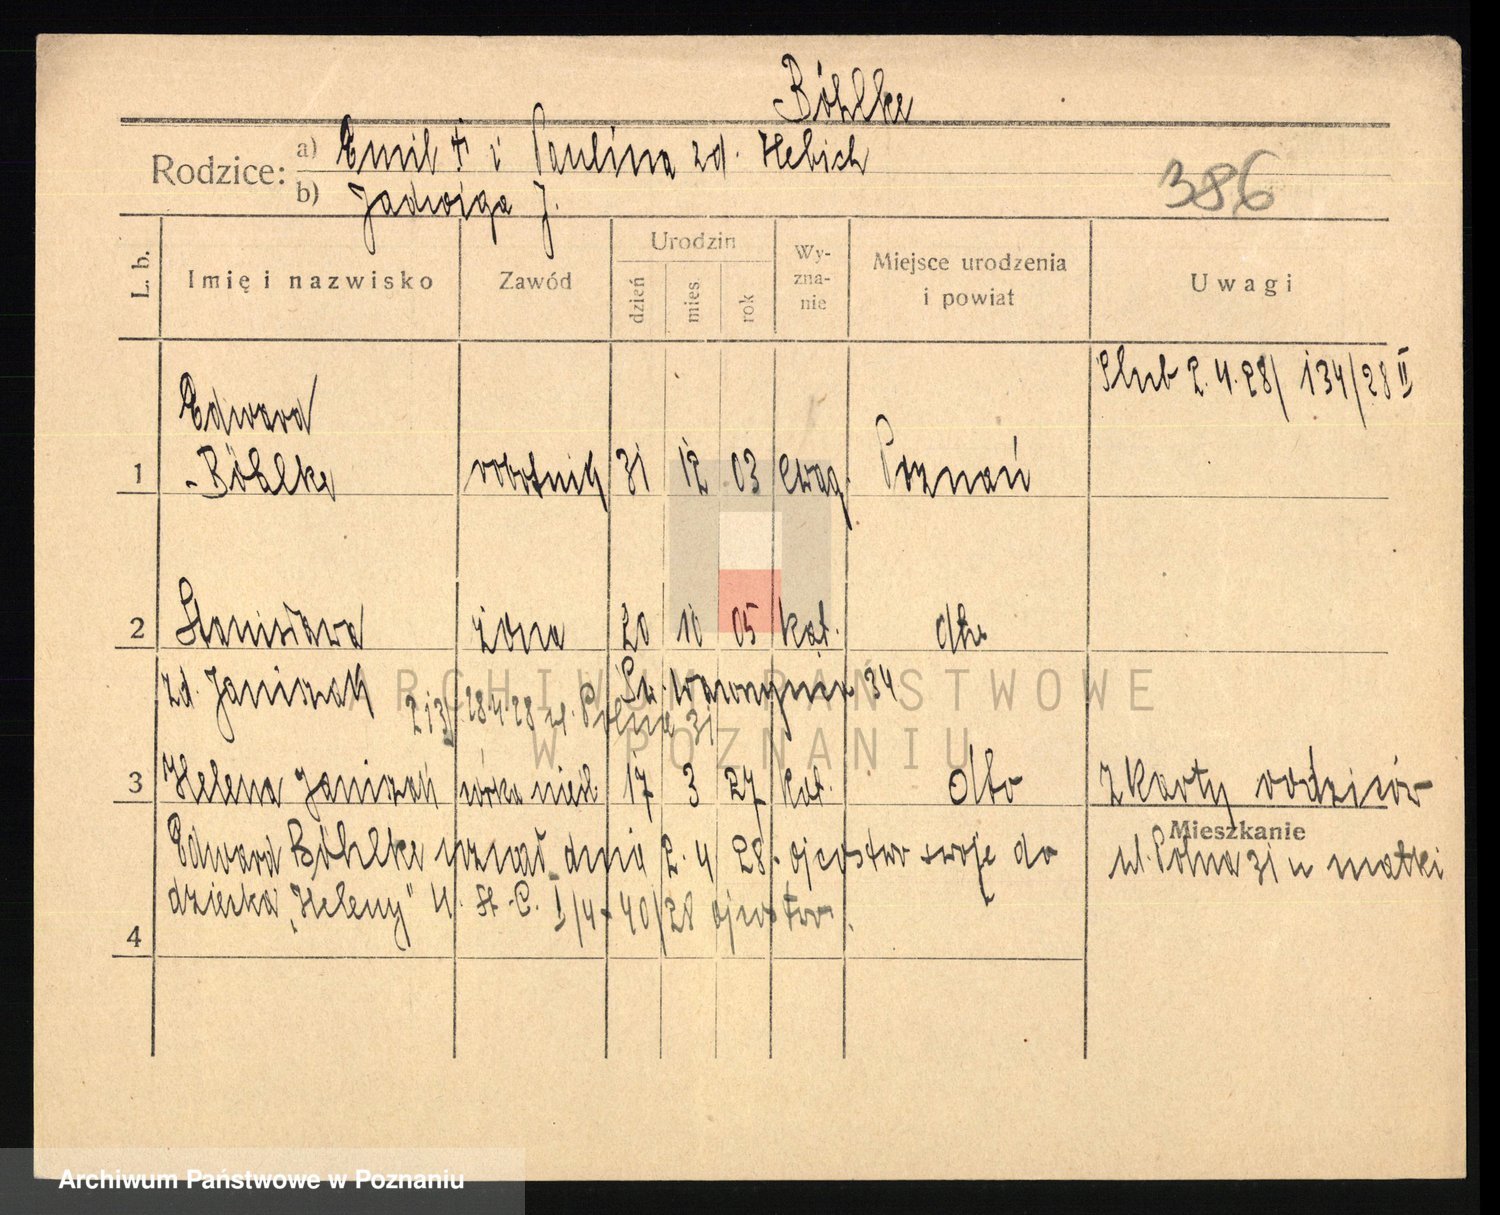 Böhlke
Rodzice: a) Emil † i Paulina zd. Hebich
b) Jadwiga J.
386
L. b. Imię i nazwisko Zawód Urodzin dzień mies. rok Wyznanie Miejsce urodzenia i powiat Uwagi
Ślub 2.4.28/ 134/28 II
Edward
1 Böhlke robotnik 31 12 03 ewag. Poznań
2 Stanisława żona 20 10 05 kat. dto
zd. Janiszak Św. Wawrzyńca 34
213/ 28.4.28 ul. Polna 31
3 Helena Janiszak córka nieśl. 17 3 27 kat. dto Z karty rodziców
Mieszkanie
Edward Böhlke uznał dnia 2.4 28. ojcostwo swoje do ul. Polna 31 u matki
dziecka „Heleny" U. S. C. I/4-40/28 ojcostwo.
4
ARCHIWUM PAŃSTWOWE
W POZNANIU
Archiwum Państwowe w Poznaniu